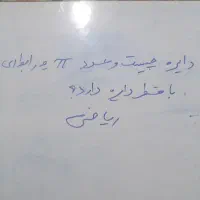 دایره چیست و عدد π چه رابطه‌ای
با قطر دایره دارد؟
ریاضی